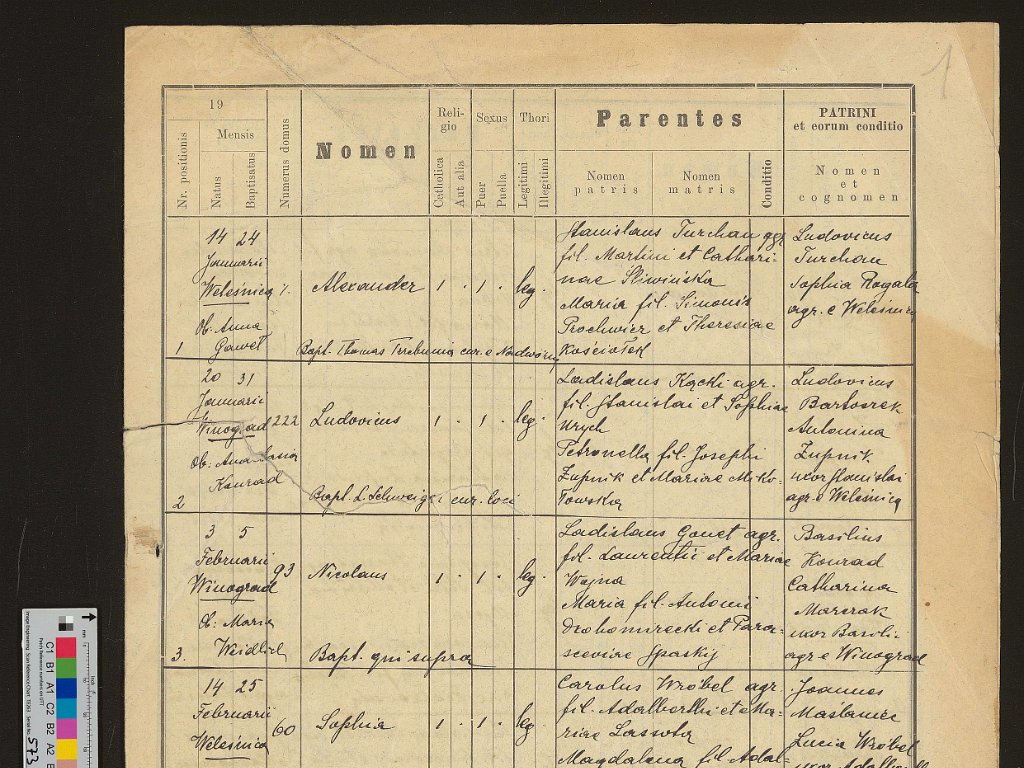 1
19
Nr. positionis
Mensis
Natus
Baptisatus
Numerus domus
Nomen
Religio
Catholica
Aut alia
Sexus
Puer
Puella
Thori
Legitimi
Illegitimi
Parentes
Nomen patris
Nomen matris
Conditio
PATRINI
et eorum conditio
Nomen
et
cognomen
14 24
Januarii
Weleśnica
Ob. Anna
Gaweł
1
Alexander
1 . 1 . leg.
Bapt. Thomas Trzebunia cur. e Nadwórny
Stanislaus Turchan agr.
fil. Martini et Cathari-
nae Śliwińska
Maria fil. Simonis
Prochwicz et Theresiae
Kościołek
Ludovicus
Turchan
Sophia Rogala
agr. e Weleśnica
20 31
Januarii
Winograd 222
Ob: Anastasia
Konrad
2
Ludovicus
1 . 1 . leg.
Bapt. L. Schweiger cur. loci
Ladislaus Kącki agr.
fil. Stanislai et Sophiae
Urych
Petronella fil. Josephi
Zupnik et Mariae Miko-
łowska
Ludovicus
Bartoszek
Antonina
Zupnik
uxor Stanislai
agr. e Weleśnica
3 5
Februarii
Winograd 93
Ob: Maria
3.
Nicolaus
1 . 1 . leg.
Bapt. qui supra
Ladislaus Gonet agr.
fil. Laurentii et Mariae
Wajna
Maria fil. Antonii
Drohomirecki et Para-
sceviae Spaskij
Basilius
Konrad
Catharina
Marczak
uxor Basili-
agr. e Winograd
14 25
Februarii
Weleśnica 60
Sophia
1 . 1 . leg.
Carolus Wróbel agr.
fil. Adalberthi et Ma-
riae Lassota
Magdalena fil. Adal-
Joannes
Maślaniec
Lucia Wróbel
uxor
C1 B1 A1 C2 B2 A2
573